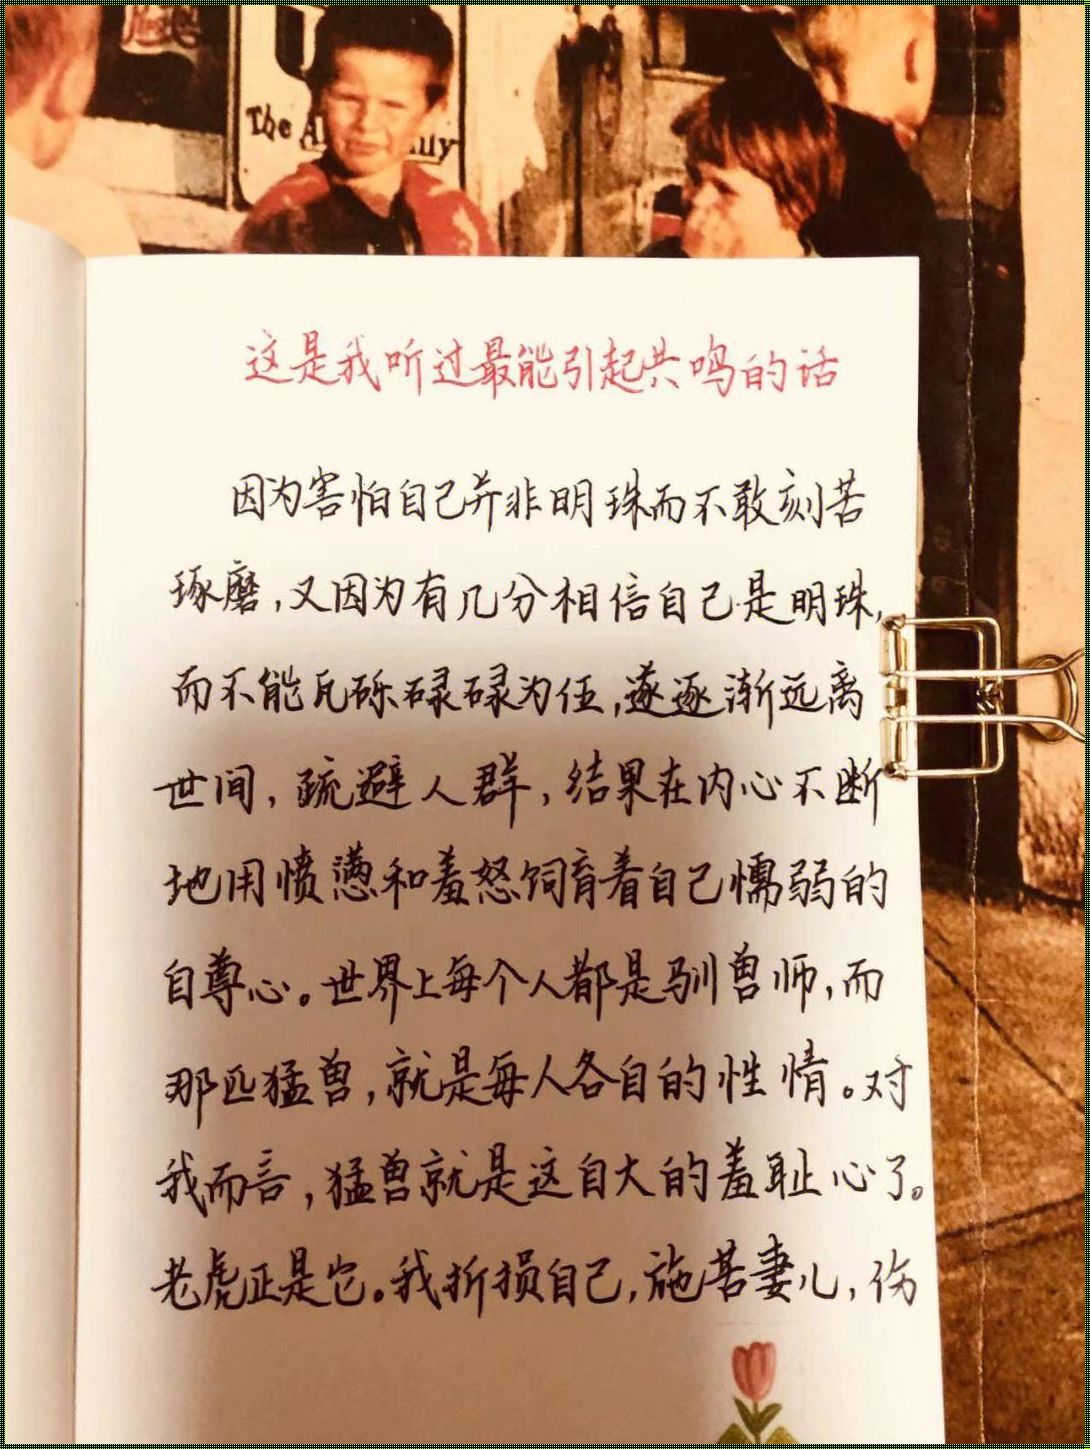 The
这是我听过最能引起共鸣的话
因为害怕自己并非明珠而不敢刻苦
琢磨,又因为有几分相信自己是明珠,
而不能瓦砾碌碌为伍,遂逐渐远离
世间,疏避人群,结果在内心不断
地用愤懑和羞怒饲育着自己懦弱的
自尊心。世界上每个人都是驯兽师,而
那匹猛兽,就是每人各自的性情。对
我而言,猛兽就是这自大的羞耻心了。
老虎正是它。我折损自己,施苦妻儿,伤